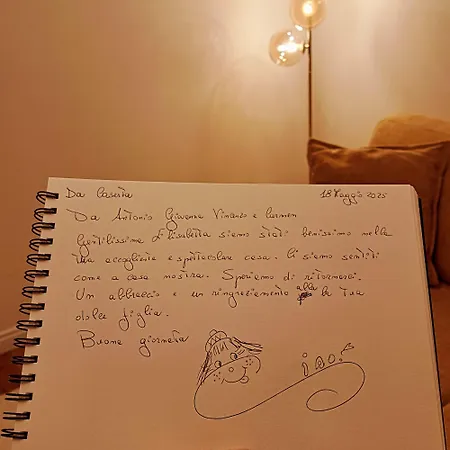 Da Caserta 18 Maggio 2025
Da Antonio Giovanna Vincenzo e Carmen
Gentilissima Elisabetta siamo stati benissimo nella
tua accogliente e spettacolare casa. Ci siamo sentiti
come a casa nostra. Speriamo di ritornarci.
Un abbraccio e un ringraziamento alla tua
dolce figlia.
Buona giornata